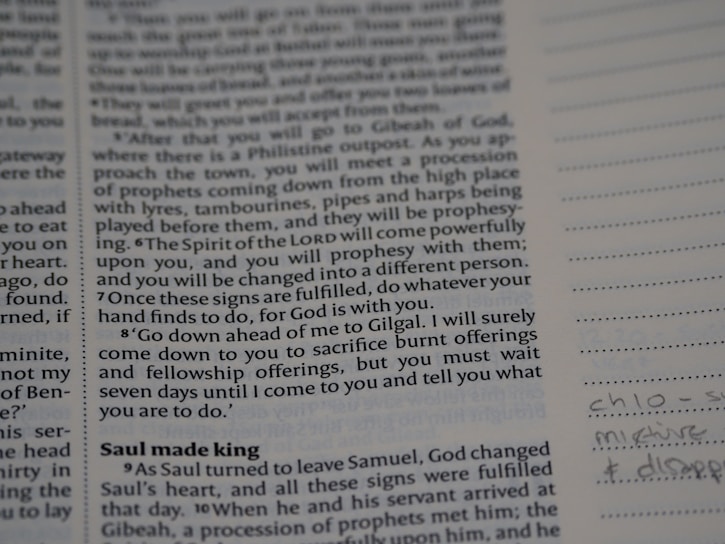 land
people
and of
ple, for
ul, the
to you
gateway
ere the
ahead
e to eat
you on
r heart.
ago, do
found.
rned, if
minite,
not my
of Ben-
e?'
his ser-
he head
hirty in
ing the
u to lay
Then you will go on from there until you
reach the great tree of Tabor. Three men going
up to worship God at Bethel will meet you there.
One will be carrying three young goats, another
three loaves of bread, and another a skin of wine.
4 They will greet you and offer you two loaves of
bread, which you will accept from them.
5 'After that you will go to Gibeah of God,
where there is a Philistine outpost. As you ap-
proach the town, you will meet a procession
of prophets coming down from the high place
with lyres, tambourines, pipes and harps being
played before them, and they will be prophesy-
ing. 6 The Spirit of the LORD will come powerfully
upon you, and you will prophesy with them;
and you will be changed into a different person.
7 Once these signs are fulfilled, do whatever your
hand finds to do, for God is with you.
8 'Go down ahead of me to Gilgal. I will surely
come down to you to sacrifice burnt offerings
and fellowship offerings, but you must wait
seven days until I come to you and tell you what
you are to do.'
Saul made king
9 As Saul turned to leave Samuel, God changed
Saul's heart, and all these signs were fulfilled
that day. 10 When he and his servant arrived at
Gibeah, a procession of prophets met him; the
upon him, and he
ch10 - s
& disapp